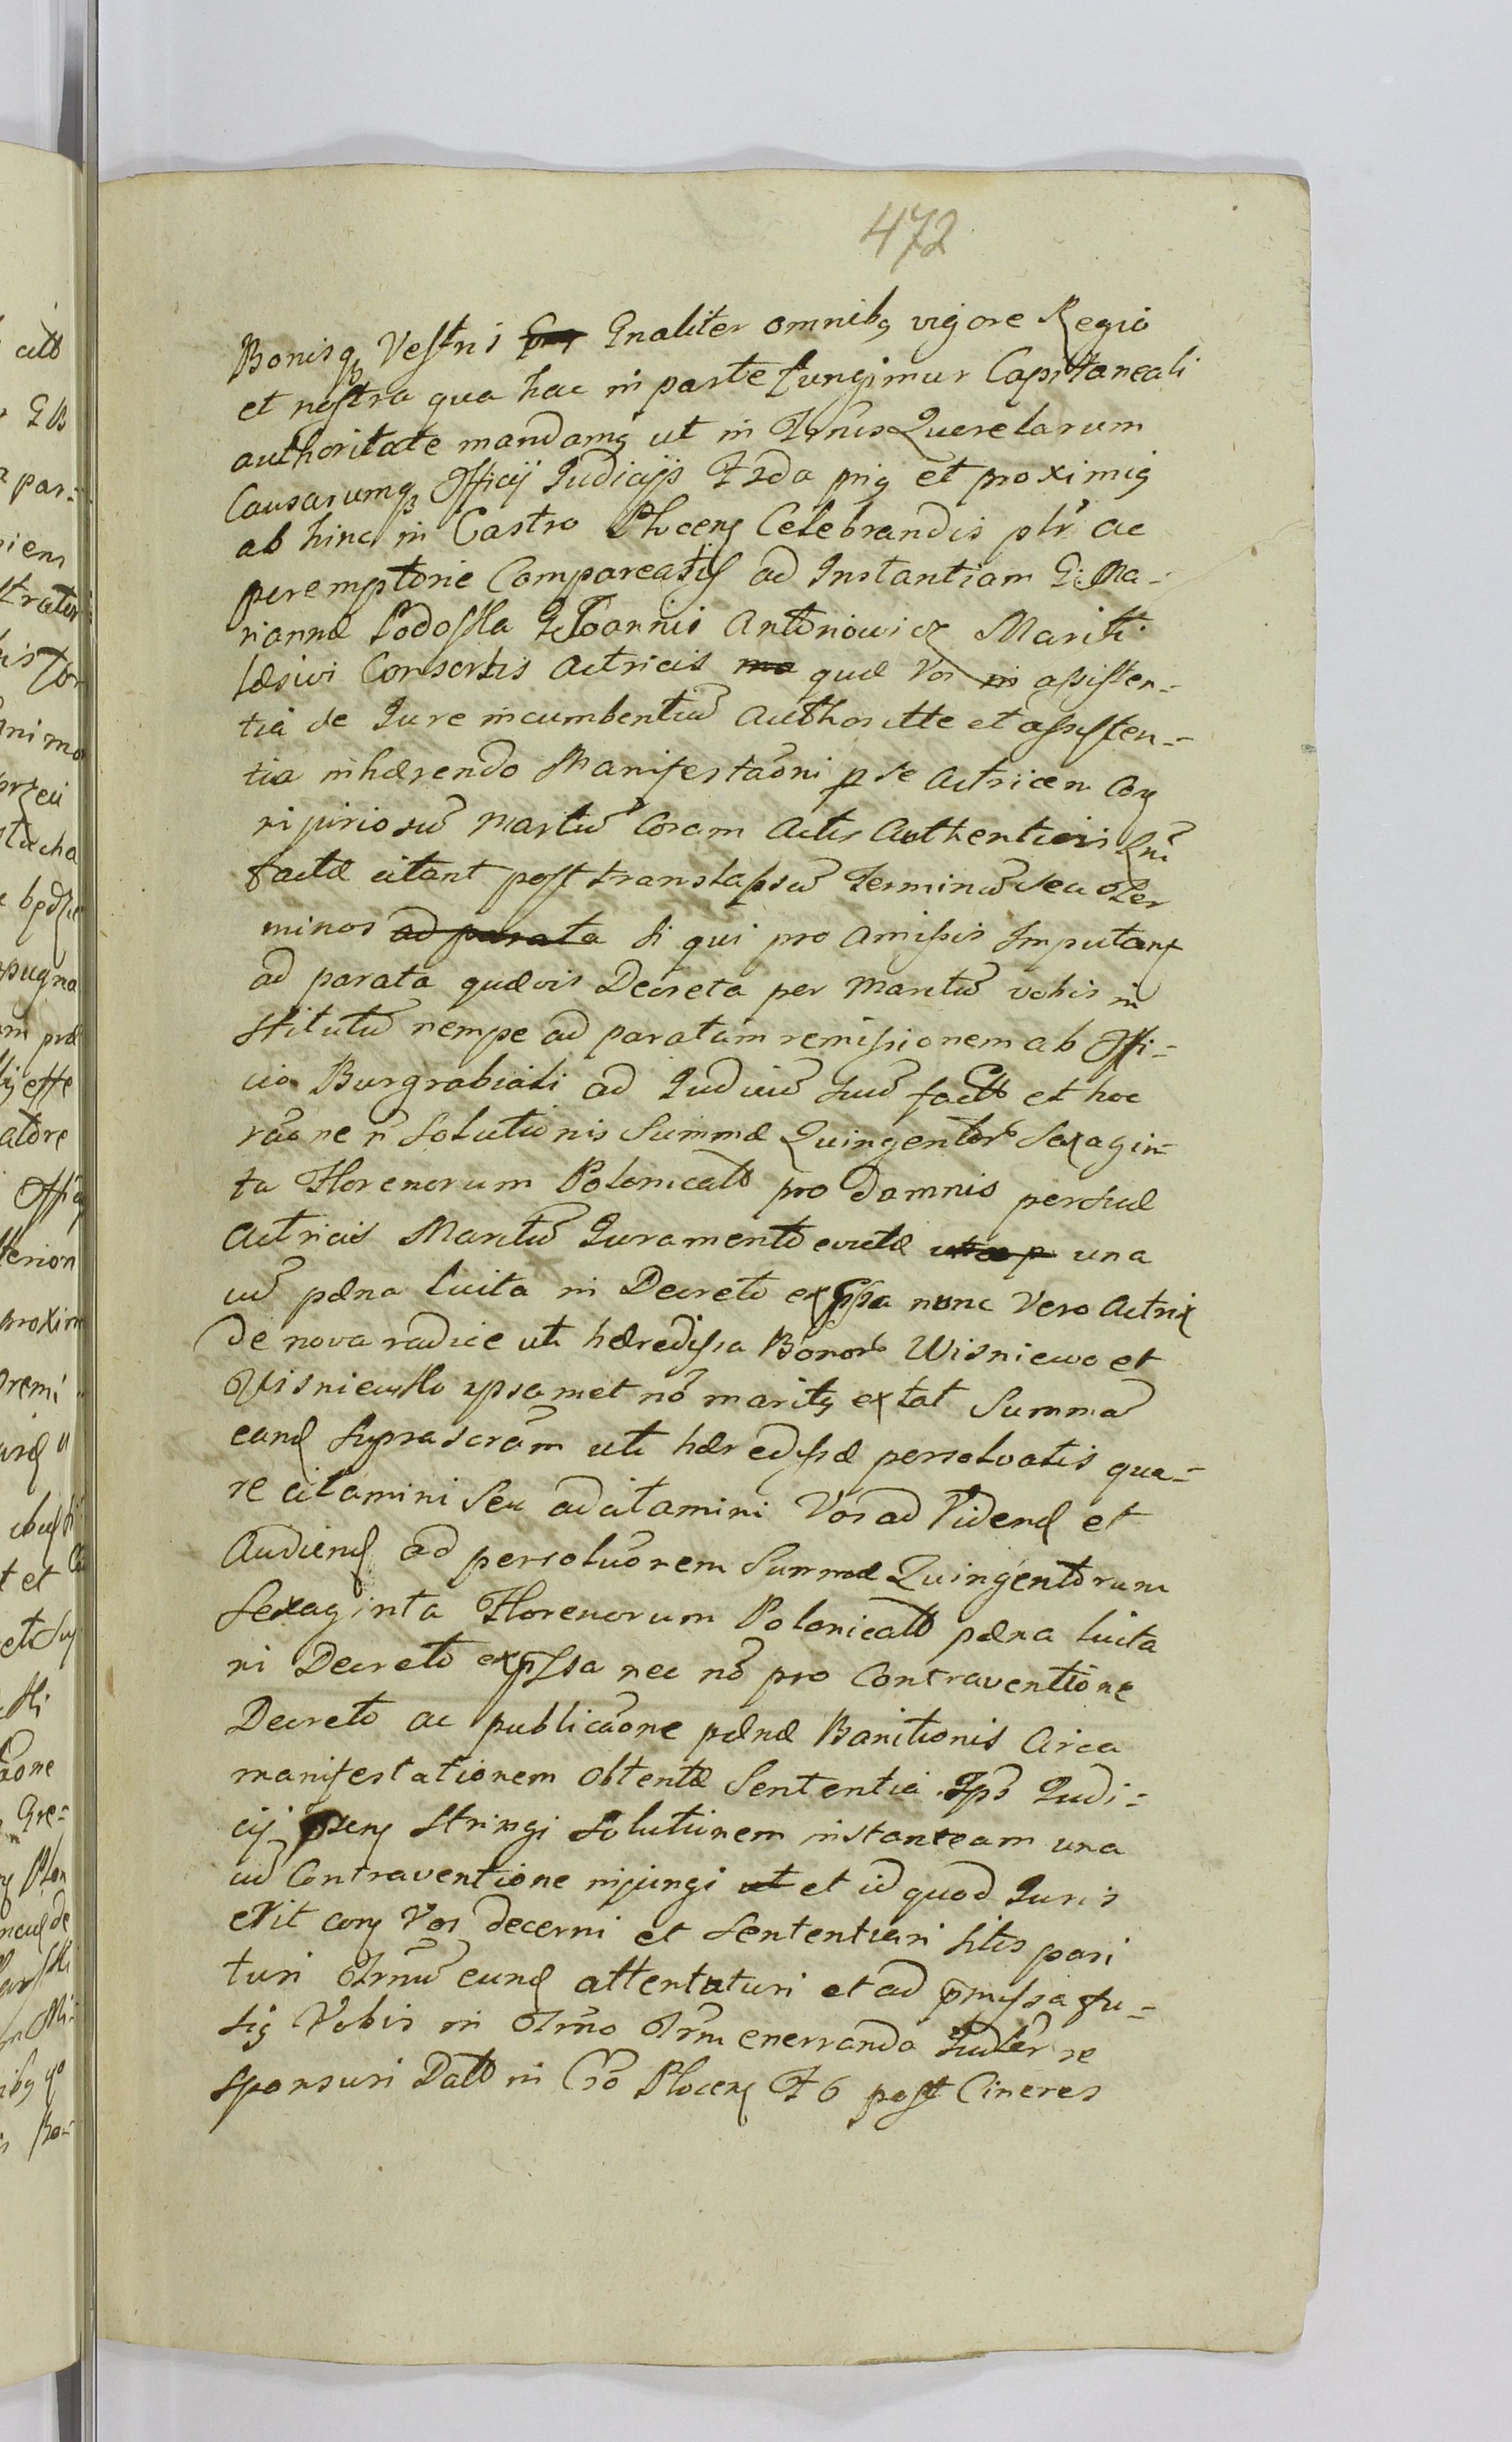 472
Bonisq Vestris Gnaliter omnibq vigore Regia
et nostra qua hac in parte fungimur Capitaneali
authoritate mandamq ut in Trnis Querelarum
Causarumq Officij Judicijs F 2da pnq et proximiq
ab hinc in Castro Plocens Celebrandis plr ac
peremptorie Compareatis ad Instantiam G. Ma-
rianna Podoska G Joannis Antoniowicz Mariti
læsivi Consortis Actricis quæ Vos in assisten-
tia de Jure incumbentiū Authoritte et assisten-
tia inhærendo Manifestaōni p se Actricem Con
injuriosū Maritū Coram Actis Authenticis
factæ citant post translapsū Terminū seu Ter
minos ad parata si qui pro Amissis Imputant
ad parata quævis Decreta per Maritū vobis in
stitutū nempe ad paratam remissionem ab Offi-
cio Burgrabiali ad Judiciū suū factū et hoc
raōne ñ Solutionis Summæ Quingentor Sexagin-
ta Florenorum Polonicalū pro damnis per suæ
Actricis Maritū Juramento evictæ una
cū pæna lucita in Decreto exPssa nunc Vero Actrix
de nova radice uti hæredissa Bonor Wisniewo et
Wisniewko ipsamet nō maritq extat Summā
eand suprascrām uti hæredissæ persolvatis qua-
re citamini Seu adcitamini Vos ad Videnḍ et
Audiend ad persoluōnem Summæ Quingentorum
Sexaginta Florenorum Polonicalū pæna lucita
in Decreto exPssa nec nō pro Contraventione
Decreto ac publicaōne pænæ Banitionis Circa
manifestationem obtentæ Sententia Ips Judi-
cij pseny stringi Solutionem instaneam una
cū Contraventione injungi ut et id quod Juris
erit cony Vos decerni et Sententiari sitis pari
turi Trnū eund attentaturi et ad pmissa fu-
siq Vobis in Trno Trm enerranda Judlr re
sponsuri Datt in Cro Plocens F 6 post Cineres